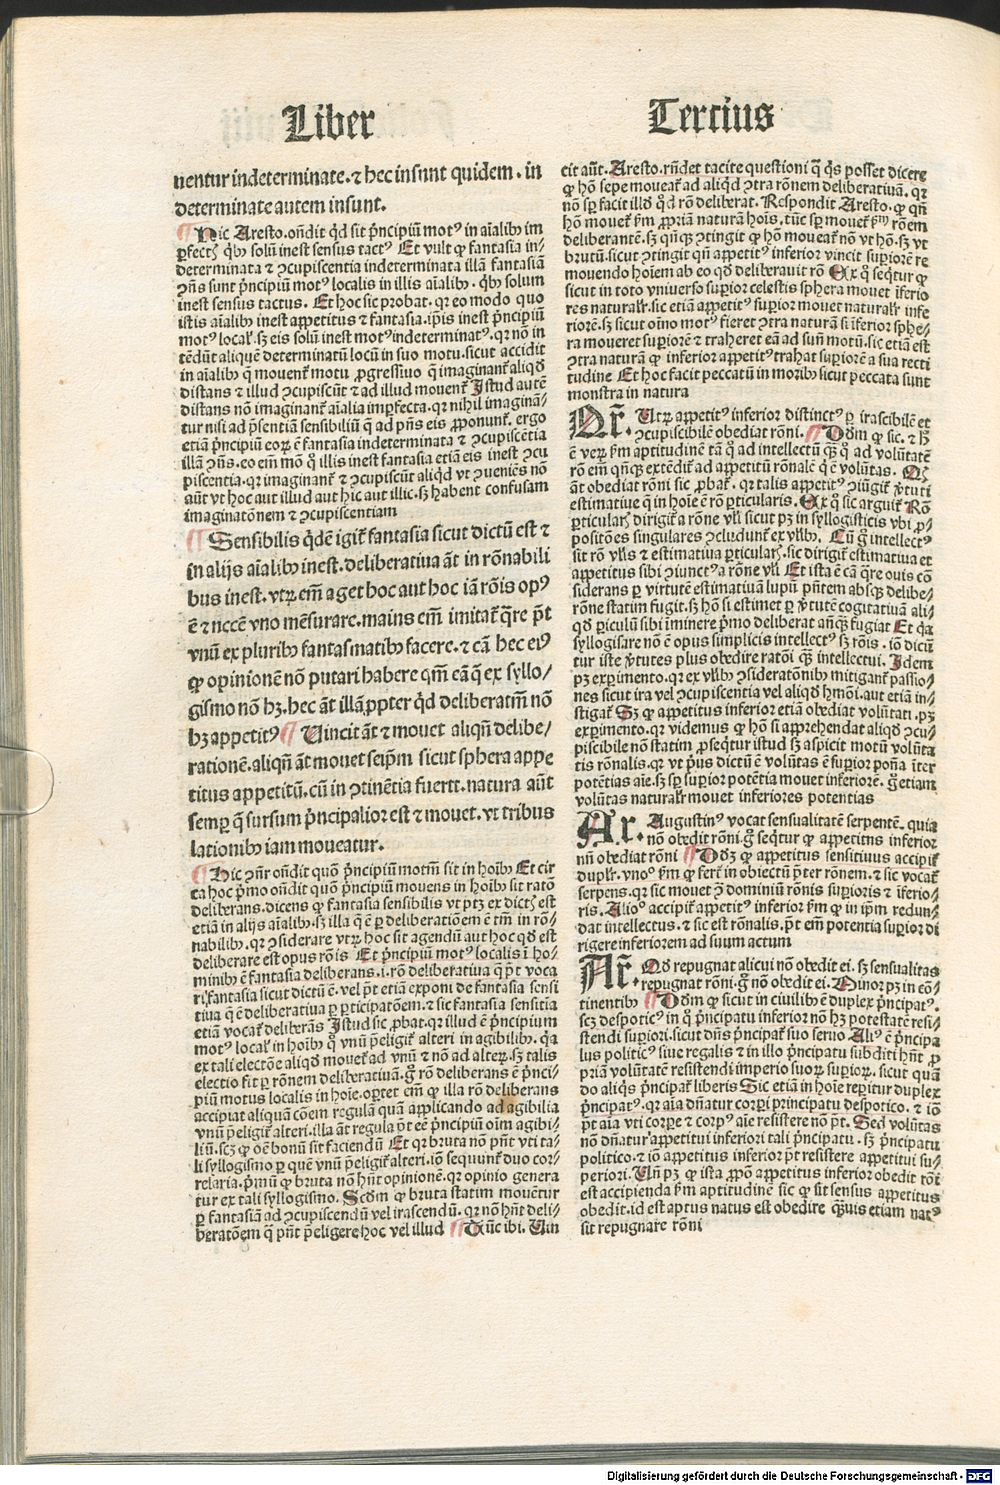 Liber
Tercius
uentur indeterminate. ⁊ hec insunt quidem. in
determinate autem insunt.
¶ Hic Aresto. oñdit qd sit pⁿcipiũ motꝰ in aĩalibꝰ im
perfectꝭ qbꝰ solũ inest sensus tactꝰ Et vult ꝙ fantasia in-
determinata ⁊ ꝯcupiscentia indeterminata illã fantasiã
ꝯñs sunt pⁿcipiũ motꝰ localis in illis aĩalibꝰ. qbꝰ solum
inest sensus tactus. Et hoc sic probat. qr eo modo quo
istis aĩalibꝰ inest appetitus ⁊ fantasia. ip̃is inest pⁿcipiũ
motꝰ local'. sꝫ eis solũ inest motꝰ indeterminatꝰ. qr nõ in
tẽdũt aliquẽ determinatũ locũ in suo motu. sicut accidit
in aĩalibꝰ q̃ mouent̃ motu ꝓgressiuo q̃ imaginant̃ aliqd
distans ⁊ illud ꝯcupiscũt ⁊ ad illud mouent̃ Istud autẽ
distans nõ imaginant̃ aĩalia imꝑfecta. qr nihil imaginã-
tur nisi ad p̃sentiam sensibiliũ q̃ ad p̃ns eis ꝓponunt̃. ergo
etiã pⁿcipiũ eoꝝ ẽ fantasia indeterminata ⁊ ꝯcupiscẽtia
illã ꝯñs. eo em̃ mõ q̊ illis inest fantasia etiã eis inest ꝯcu
piscentia. qr imaginant̃ ⁊ ꝯcupiscũt aliqd vt ꝯueniẽs nõ
aũt vt hoc aut illud aut hic aut illic. sꝫ habent confusam
imaginatõnem ⁊ ꝯcupiscentiam
¶ Sensibilis qdẽ igit̃ fantasia sicut dictũ est ⁊
in alijs aĩalibꝰ inest. deliberatiua ãt in rõnabili
bus inest. vtꝝ em̃ aget hoc aut hoc iã rõis opꝰ
ẽ ⁊ nccẽ vno mẽsurare. maius em̃ imitat̃ qre p̃t
vnũ ex pluribꝰ fantasmatibꝰ facere. ⁊ cã hec eiꝰ
ꝙ opinionẽ nõ putari habere qm̃ eã q̃ ex syllo-
gismo nõ hꝫ. hec ãt illã. ꝓpter qd deliberatm̃ nõ
hꝫ appetitꝰ ¶ Uincit ãt ⁊ mouet aliqñ delibe-
rationẽ. aliqñ ãt mouet seip̃m sicut sphera appe
titus appetitũ. cũ in ꝯtinẽtia fuerit. natura aũt
semꝑ q̃ sursum pⁿcipalior est ⁊ mouet. vt tribus
lationibꝰ iam moueatur.
¶ Hic ꝯñr oñdit quõ pⁿcipiũ motm̃ sit in hoĩbꝰ Et cir
ca hoc pⁿmo oñdit quõ pⁿcipiũ mouens in hoĩbꝰ sit ratõ
deliberans. dicens ꝙ fantasia sensibilis vt ptꝫ ex dictꝭ est
etiã in alijs aĩalibꝰ. sꝫ illa q̃ ẽ ꝑ deliberatiõem ẽ tm̃ in rõ-
nabilibꝰ. qr ꝯsiderare vtrꝝ hoc sit agendũ aut hoc qd est
deliberare est opus rõis Et pⁿcipiũ motꝰ localis ĩ ho-
minibꝰ ẽ fantasia deliberans. i. rõ deliberatiua q̃ p̃t voca
ri fantasia sicut dictũ ẽ. vel p̃t etiã exponi de fantasia sensi
tiua q̃ ẽ deliberatiua ꝑ ꝑticipatõem. ⁊ sic fantasia sensitia
etiã vocat̃ deliberãs Istud sic ꝓbat. qr illud ẽ pⁿcipium
motꝰ local' in hoĩbꝰ q̊ vnũ p̃eligit̃ alteri in agibilibꝰ. qa
ex tali electõe aliqd mouet̃ ad vnũ ⁊ nõ ad alteꝝ. sꝫ talis
electio fit ꝑ rõnem deliberatiuã. g̊ rõ deliberans ẽ pⁿci-
piũ motus localis in hoĩe. oꝑtet em̃ ꝙ illa rõ deliberans
accipiat aliquã cõem regulã quã applicando ad agibilia
vnũ p̃eligit̃ alteri. illa ãt regula p̃t eẽ pⁿcipiũ oĩm agibi-
liũ. scꝫ ꝙ oẽ bonũ sit faciendũ Et qr bruta nõ pñt vti ta-
li syllogismo ꝑ quẽ vnũ p̃eligit̃ alteri. iõ sequunt̃ duo cor-
relaria. pⁿmũ ꝙ bruta nõ hñt opinionẽ. qr opinio genera
tur ex tali syllogismo. Scd̃m ꝙ bruta statim mouẽtur
ꝑ fantasiã ad ꝯcupiscendũ vel irascendũ. qr nõ hñt deli-
beratõem q̃ pñt p̃eligere hoc vel illud ¶ Tũc ibi. Uin
cit aũt. Aresto. rñdet tacite questioni q̃ qs posset dicere
ꝙ hõ sepe mouet̃ ad aliqd ꝯtra rõnem deliberatiuã. qr
nõ sꝑ facit illd̃ qd rõ deliberat. Respondit Aresto. ꝙ qñ
hõ mouet̃ km̃ ꝓpriã naturã hoĩs. tũc sꝑ mouet̃ km̃ rõem
deliberantẽ. sꝫ qñqꝫ ꝯtingit ꝙ hõ moueat̃ nõ vt hõ. sꝫ vt
brutũ. sicut ꝯtingit qñ appetitꝰ inferior vincit supiorẽ re
mouendo hoĩem ab eo qd deliberauit rõ Ex q̊ seqt̃ur ꝙ
sicut in toto vniuerso superior celestis sphera mouet ĩferio
res naturalr̃. sic etiã appetitꝰ superior mouet naturalr̃ infe
riorẽ. sꝫ sicut oĩno motꝰ fieret ꝯtra naturã si ĩferior sphe-
ra moueret superiorẽ ⁊ traheret eã ad suũ motũ. sic etiã est
ꝯtra naturã ꝙ inferior appetitꝰ trahat superiorẽ a sua recti
tudine Et hoc facit peccatũ in moribꝰ sicut peccata sunt
monstra in natura
Qr̃. Utꝝ appetitꝰ inferior distinctꝰ ꝑ irascibilẽ et
ꝯcupiscibilẽ obediat rõni. ¶ Dd̃m ꝙ sic. ⁊ hͦ
ẽ veꝝ km̃ aptitudinẽ tã q̊ ad intellectũ qꝫ q̊ ad volũtatẽ
rõ em̃ qñqꝫ extẽdit̃ ad appetitũ rõnalẽ q̃ ẽ volũtas. Qꝙ
ãt obediat rõni sic ꝓbat̃. qr talis appetitꝰ ꝯiũgit̃ ṽtuti
estimatiue q̃ in hoĩe ẽ rõ ꝑticularis. Ex q̊ sic arguit̃ Rõ
ꝑticularꝭ dirigit̃ a rõne vl'i sicut pꝫ in syllogisticis vbi ꝓ-
positões singulares ꝯcludunt̃ ex vl'ibꝰ. Cũ g̊ intellectꝰ
sit rõ vl'is ⁊ estimatiua ꝑticularꝭ. sic dirigit̃ estimatiua et
appetitus sibi ꝯiunctꝰ a rõne vl'i Et ista ẽ cã qre ouis cõ
siderans ꝑ virtutẽ estimatiuã lupũ p̃ntem absqꝫ delibe-
rõne statim fugit. sꝫ hõ si estimet ꝑ ṽtutẽ cogitatiuã ali-
qd ꝑiculũ sibi iminere pⁿmo deliberat anqꝫ fugiat Et qa
syllogisare nõ ẽ opus simplicis intellectꝰ sꝫ rõis. iõ dicũ
tur iste ṽtutes plus obedire ratõni qꝫ intellectui. Idem
pꝫ experimento. qr ex vl'ibꝰ ꝯsideratõnibꝰ mitigant̃ passio-
nes sicut ira vel ꝯcupiscentia vel aliqd hmõi. aut etiã in-
stigat̃ Sꝫ ꝙ appetitus inferior etiã obediat volũtati. pꝫ
exꝑimento. qr videmus ꝙ hõ si apprehendat aliqd ꝯcu-
piscibile nõ statim ꝓseqt̃ur istud sꝫ aspicit motũ volũta
tis rõnalis. qr vt pⁿus dictũ ẽ volũtas ẽ superior põna ĩter
potẽtias aĩe. sꝫ sꝑ superior potẽtia mouet inferiorẽ. g̊ etiam
volũtas naturalr̃ mouet inferiores potentias
Ar̃. Augustinꝰ vocat sensualitatẽ serpentẽ. quia
nõ obedit rõni. g̊ seqt̃ur ꝙ appetitus inferior
nñ obediat rõni ¶ Dd̃ꝫ ꝙ appetitus sensitiuus accipit̃
duplr̃. vnoͦ km̃ ꝙ fert̃ in obiectũ p̃ter rõnem. ⁊ sic vocat̃
serpens. qr sic mouet ꝯ dominiũ rõnis superioris ⁊ ĩferio-
ris. Alioͦ accipit̃ appetitꝰ inferior km̃ ꝙ in ip̃m redun-
dat intellectus. ⁊ sic est rõnalis. p̃t em̃ potentia superior di
rigere inferiorem ad suum actum
Ar̃. Qd̃ repugnat alicui nõ obedit ei. sꝫ sensualitas
repugnat rõni. g̊ nõ obedit ei. Minor pꝫ in cõ-
tinentibꝰ ¶ Dd̃m ꝙ sicut in ciuilibꝰ ẽ duplex pⁿcipatꝰ.
scꝫ despoticꝰ in q̊ pⁿcipatu inferior nõ hꝫ potestatẽ resi-
stendi superiori. sicut dñs pⁿcipat̃ suo seruo Aliꝰ ẽ pⁿcipa
tus politicꝰ siue regalis ⁊ in illo pⁿcipatu subditi hñt ꝓ
priã voluntatẽ resistendi imperio suoꝝ superioꝝ. sicut quã
do aliqs pⁿcipat̃ liberis Sic etiã in hoĩe reperitur duplex
pⁿcipatꝰ. qr aĩa dñatur corpori principatu despotico. ⁊ iõ
p̃t aĩa vti corpore ⁊ corpꝰ aĩe resistere nõ p̃t. Sed volũtas
nõ dñatur appetitui inferiori tali pⁿcipatu. sꝫ pⁿcipatu
politico. ⁊ iõ appetitus inferior p̃t resistere appetitui su-
periori. Uñ pꝫ ꝙ ista ꝓpõ appetitus inferior obedit rõni
est accipienda km̃ aptitudinẽ sic ꝙ sit sensus appetitus
obedit. id est aptus natus est obedire qꝫuis etiam natꝰ
sit repugnare rõni
Digitalisierung gefördert durch die Deutsche Forschungsgemeinschaft - DFG